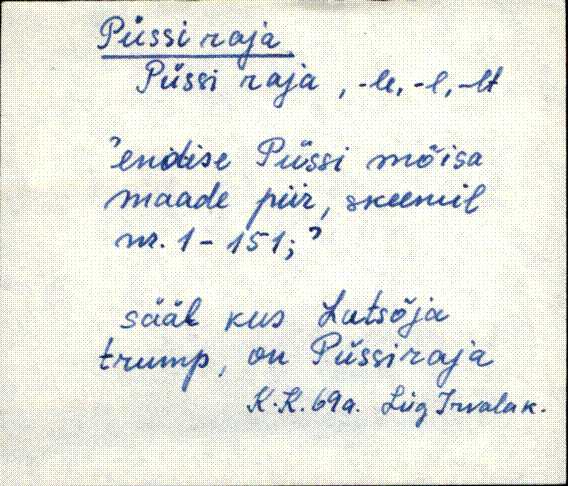 Püssi raja
Püssi raja, -le, -l, -lt
"endise Püssi mõisa
maade piir, skeemil
nr. 1 - 151;"
sääl kus Lutsõja
trump, on Püssiraja
K.K. 69a. Lüg Irvala k.